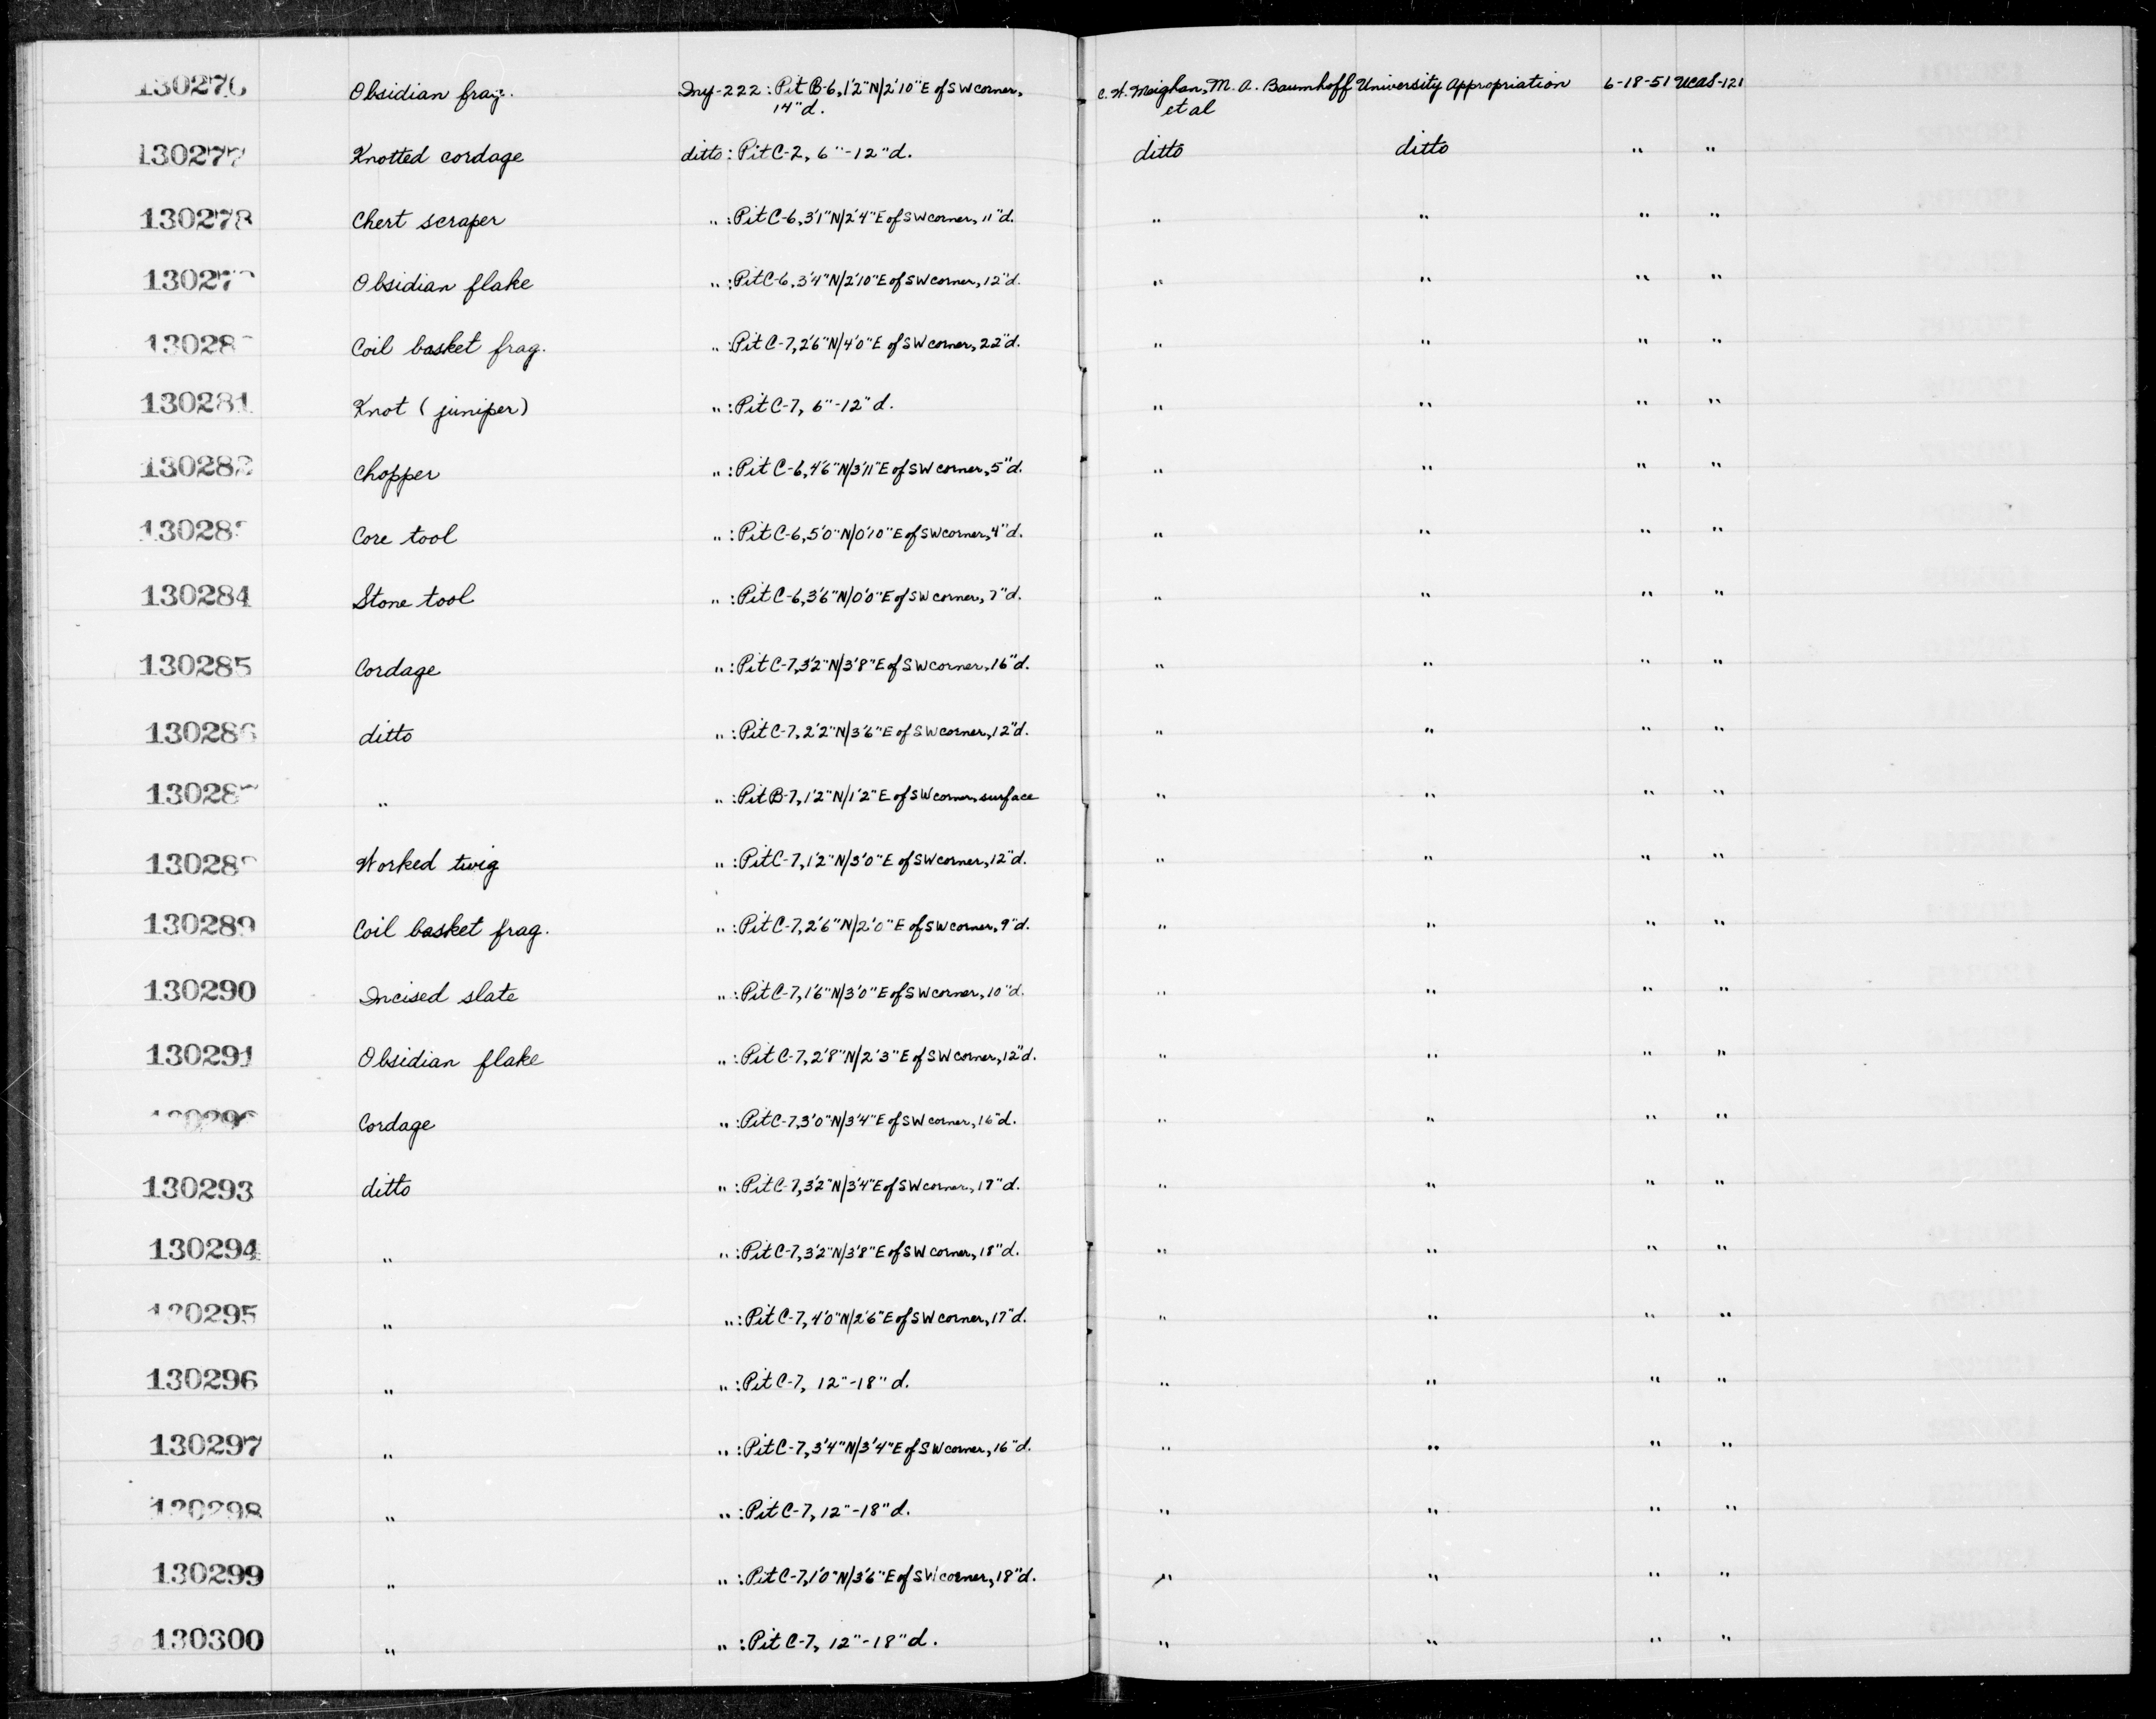 130276 Obsidian frag. Iny-222: Pit B-6, 1'2"N/2'10"E of SW corner, C. W. Meighan, M. A. Baumhoff University Appropriation 6-18-51 UCAS-121
14"d. et al
130277 Knotted cordage ditto: Pit C-2, 6"-12"d. ditto ditto " "
130278 Chert scraper " : Pit C-6, 3'1"N/2'4"E of SW corner, 11"d. " " " "
130279 Obsidian flake " : Pit C-6, 3'4"N/2'10"E of SW corner, 12"d. " " " "
13028 Coil basket frag. " : Pit C-7, 2'6"N/4'0"E of SW corner, 22"d. " " " "
130281 Knot (juniper) " : Pit C-7, 6"-12"d. " " " "
130282 Chopper " : Pit C-6, 4'6"N/3'11"E of SW corner, 5"d. " " " "
130283 Core tool " : Pit C-6, 5'0"N/0'10"E of SW corner, 4"d. " " " "
130284 Stone tool " : Pit C-6, 3'6"N/0'0"E of SW corner, 7"d. " " " "
130285 Cordage " : Pit C-7, 3'2"N/3'8"E of SW corner, 16"d. " " " "
130286 ditto " : Pit C-7, 2'2"N/3'6"E of SW corner, 12"d. " " " "
130287 " " : Pit B-7, 1'2"N/1'2"E of SW corner, surface " " " "
13028 Worked twig " : Pit C-7, 1'2"N/3'0"E of SW corner, 12"d. " " " "
130289 Coil basket frag. " : Pit C-7, 2'6"N/2'0"E of SW corner, 9"d. " " " "
130290 Incised slate " : Pit C-7, 1'6"N/3'0"E of SW corner, 10"d. " " " "
130291 Obsidian flake " : Pit C-7, 2'8"N/2'3"E of SW corner, 12"d. " " " "
130292 Cordage " : Pit C-7, 3'0"N/3'4"E of SW corner, 16"d. " " " "
130293 ditto " : Pit C-7, 3'2"N/3'4"E of SW corner, 17"d. " " " "
130294 " " : Pit C-7, 3'2"N/3'8"E of SW corner, 18"d. " " " "
130295 " " : Pit C-7, 4'0"N/2'6"E of SW corner, 17"d. " " " "
130296 " " : Pit C-7, 12"-18"d. " " " "
130297 " " : Pit C-7, 3'4"N/3'4"E of SW corner, 16"d. " " " "
130298 " " : Pit C-7, 12"-18"d. " " " "
130299 " " : Pit C-7, 1'0"N/3'6"E of SW corner, 18"d. " " " "
130300 " " : Pit C-7, 12"-18"d. " " " "